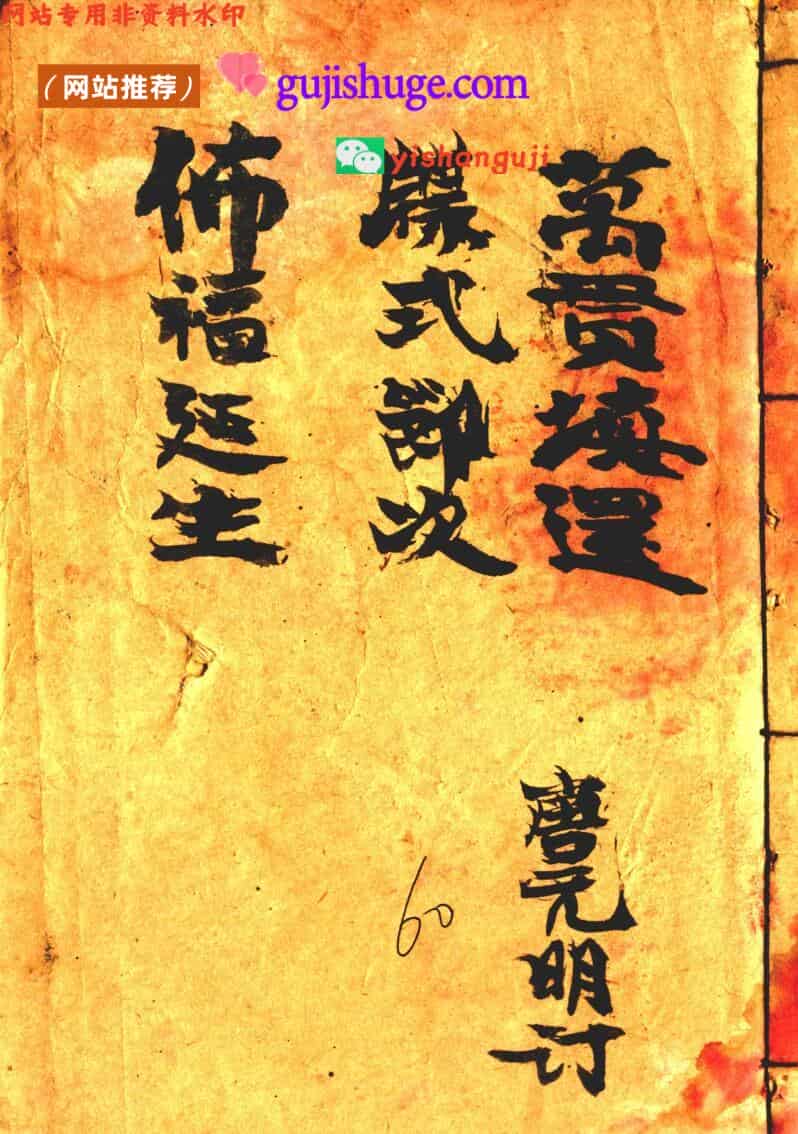 网站专用非资料水印
（网站推荐）
gujishuge.com
yishanguji
萬贯填還
牒式部次
佈福延生
唐元明订
60